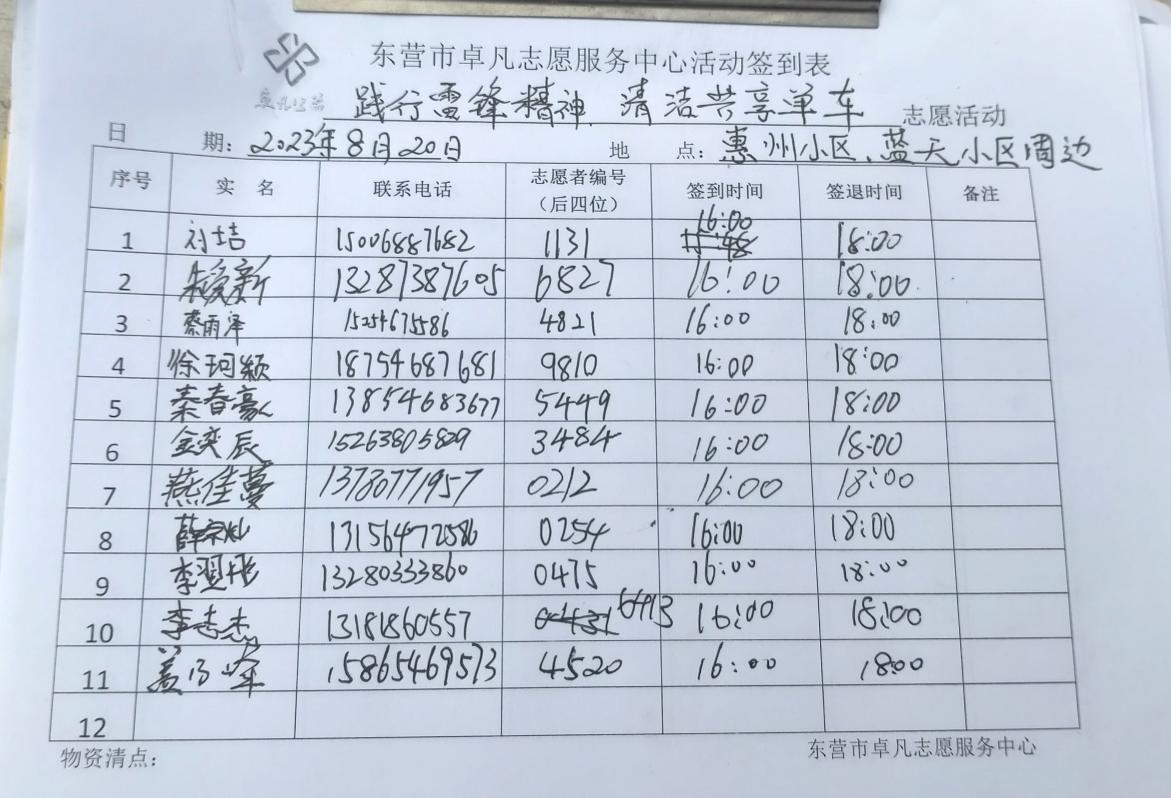 东营市卓凡志愿服务中心活动签到表
卓凡公益
践行雷锋精神、清洁共享单车 志愿活动
日 期：2023年8月20日 地 点：惠州小区、蓝天小区周边
序号 实 名 联系电话 志愿者编号（后四位） 签到时间 签退时间 备注
1 15006887682 1131 16:00 18:00
2 13287387605 6827 16:00 18:00
3 蔡雨泽 15254675586 4821 16:00 18:00
4 徐珂颖 18754687681 9810 16:00 18:00
5 秦春豪 13854683677 5449 16:00 18:00
6 金奕辰 15263805829 3484 16:00 18:00
7 燕佳蔓 13780771957 0212 16:00 18:00
8 13156472586 0254 16:00 18:00
9 13280333860 0475 16:00 18:00
10 李志杰 13181860557 16:00 18:00
11 15865469573 4520 16:00 18:00
12
物资清点： 东营市卓凡志愿服务中心